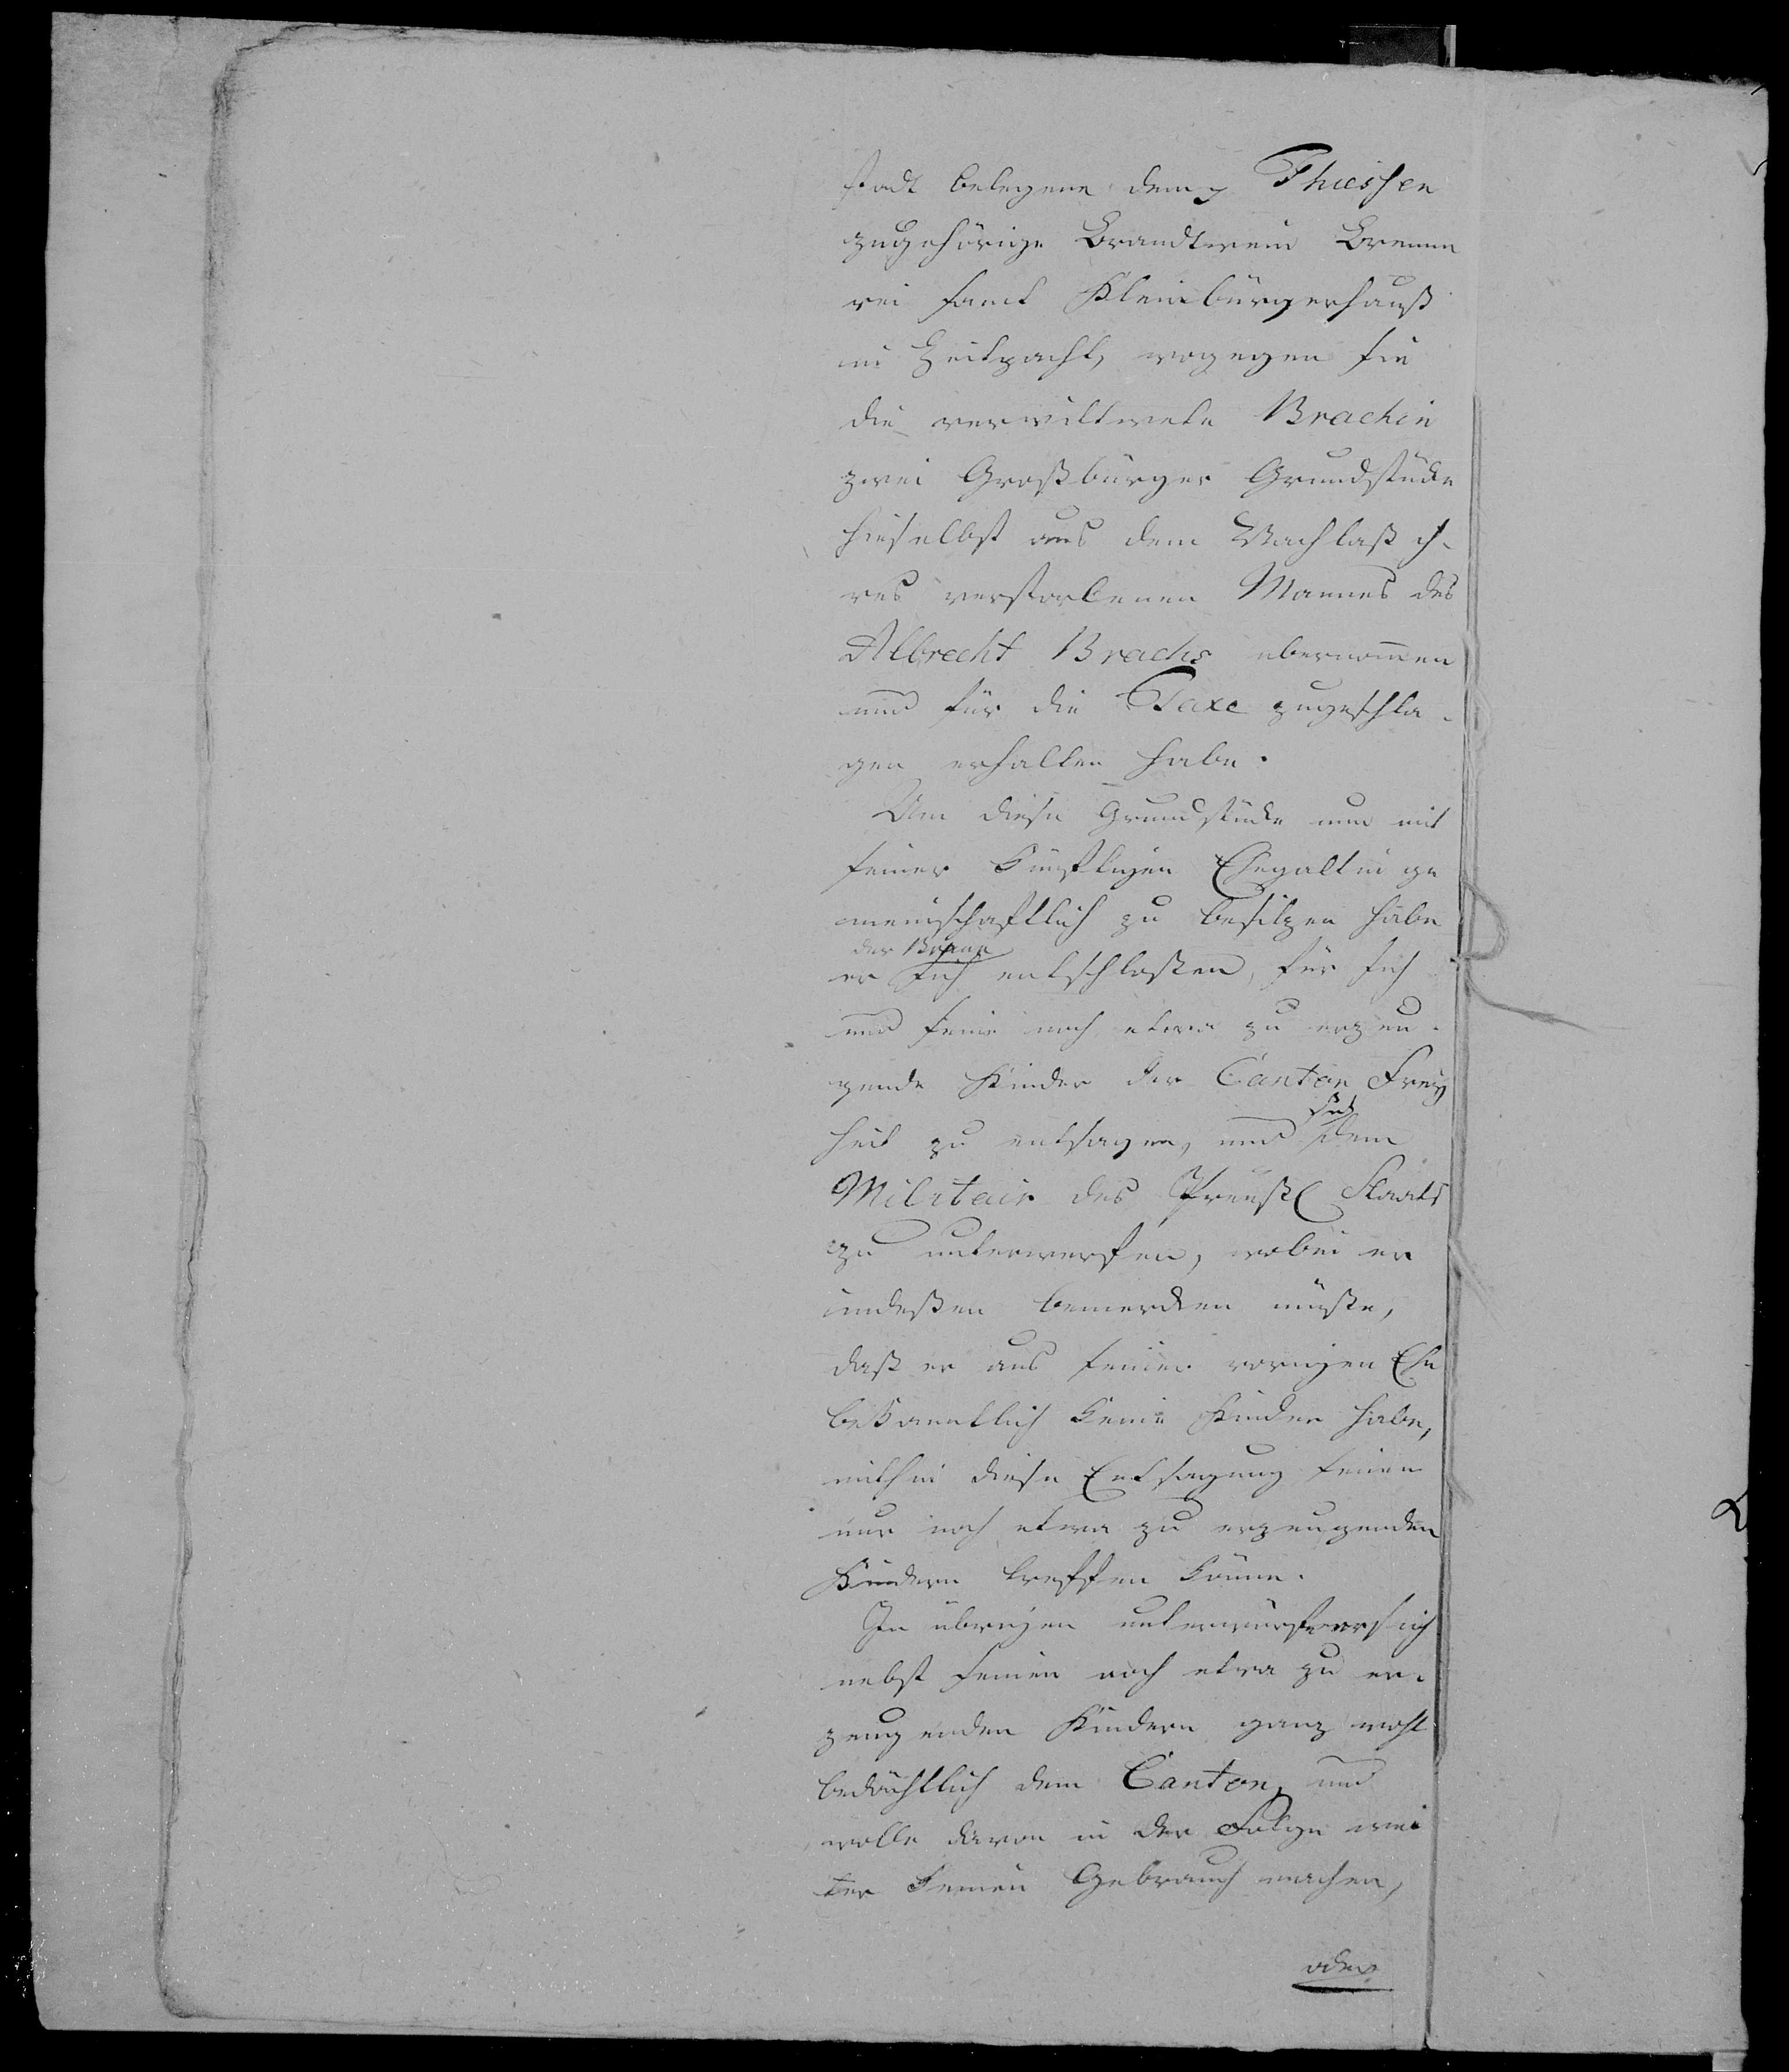 stadt belegene dem p Thiessen
zugehörige Brandtwein Brenne
rei samt Kleinbürgerhauß
in Zeitpacht, wogegen sie
die verwittwete Brachin
zwei Großbürger Grundstücke
hieselbst aus dem Nachlaß ih-
res verstorbenen Mannes des
Albrecht Brachs übernom̄en
und für die Taxe zugeschla-
gen erhalten habe.
Um diese Grundstücke nun mit
seiner künftigen Ehegattin ge
meinschaftlich zu besitzen habe
der
er sich entschloßen, für sich
und seine noch etwa zu erzeu-
gende Kinder der Canton Frey
sich
heit zu entsagen, und dem
Militair des Preuß Staats
zu unterwerfen, wobei er
indeßen bemerken müßte,
daß er aus seiner vorigen Ehe
bekanntlich keine Kinder habe,
mithin diese Entsagung seinen
nur noch etwa zu erzeugenden
Kindern treffen könne.
Im übrigen unterwürfe er sich
nebst seinen noch etwa zu er-
zeugenden Kindern ganz wohl
bedächtlich dem Canton, und
wolle davon in der Folge wei
ter keinen Gebrauch machen,
oder